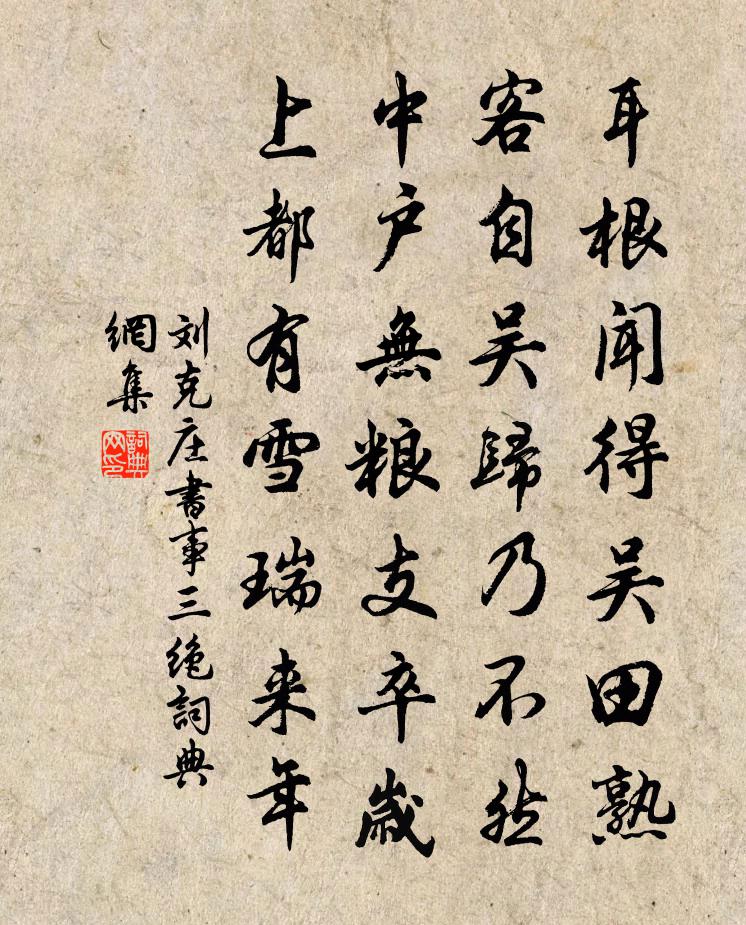 耳根聞得吴田熟
客自吴歸乃不然
中户無粮支卒歲
上都有雪瑞来年
刘克庄書事三绝詞典
網集
詞典
网印